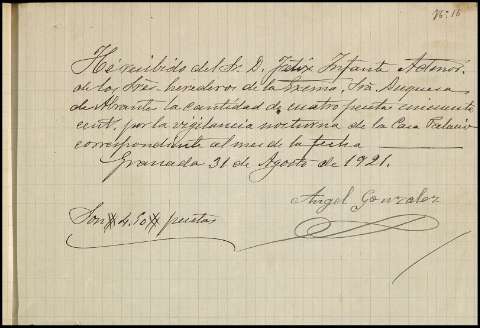 Nº. 16
He recibido del Sr. D. Felix Infante Admor.
de los Sres. herederos de la Excma. Sra. Duquesa
de Abrantes la cantidad de cuatro pesetas cincuenta
cent. por la vigilancia nocturna de la Casa Palacio
correspondiente al mes de la fecha
Granada 31 de Agosto de 1921.
Angel Gonzalez
Son 4.50 pesetas